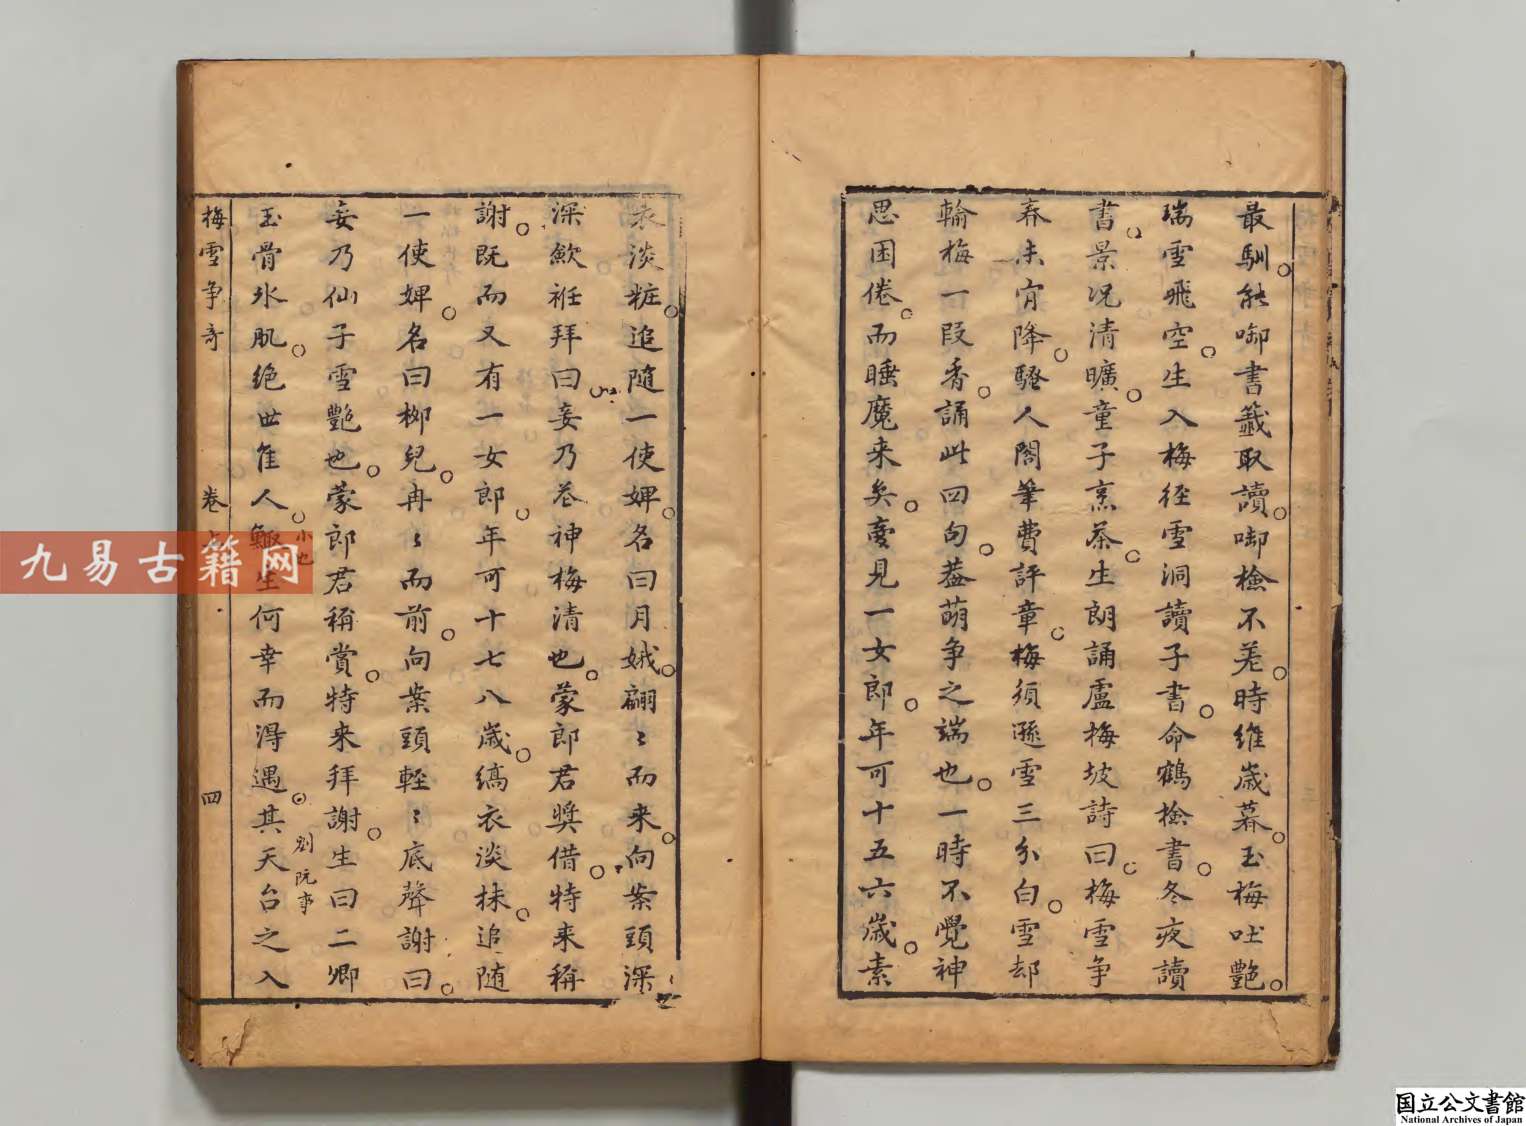 最馴能啣書籤取讀啣檢不差時維歲暮玉梅吐艷
瑞雪飛空生入梅徑雪洞讀子書命鶴檢書冬夜讀
書景况清曠童子烹茶生朗誦盧梅坡詩曰梅雪争
春未肯降騷人閣筆費評章梅須遜雪三分白雪却
輸梅一叚香誦此四句葢萌争之端也一時不覺神
思困倦而睡魔来矣夜見一女郎年可十五六歲素
衣淡粧追隨一使婢名曰月娥翩〻而来向案頭深
深歛袵拜曰妾乃花神梅清也蒙郎君奬借特来稱
謝既而又有一女郎年可十七八歲縞衣淡抹追随
一使婢名曰柳兒冉〻而前向案頭輕〻底聲謝曰
妾乃仙子雪艷也蒙郎君稱賞特来拜謝生曰二卿
玉骨氷肌絶世隹人鯫生何幸而淂遇其天台之入
小也
劉阮事
梅雪争奇
卷
四
九易古籍网
国立公文書館
National Archives of Japan